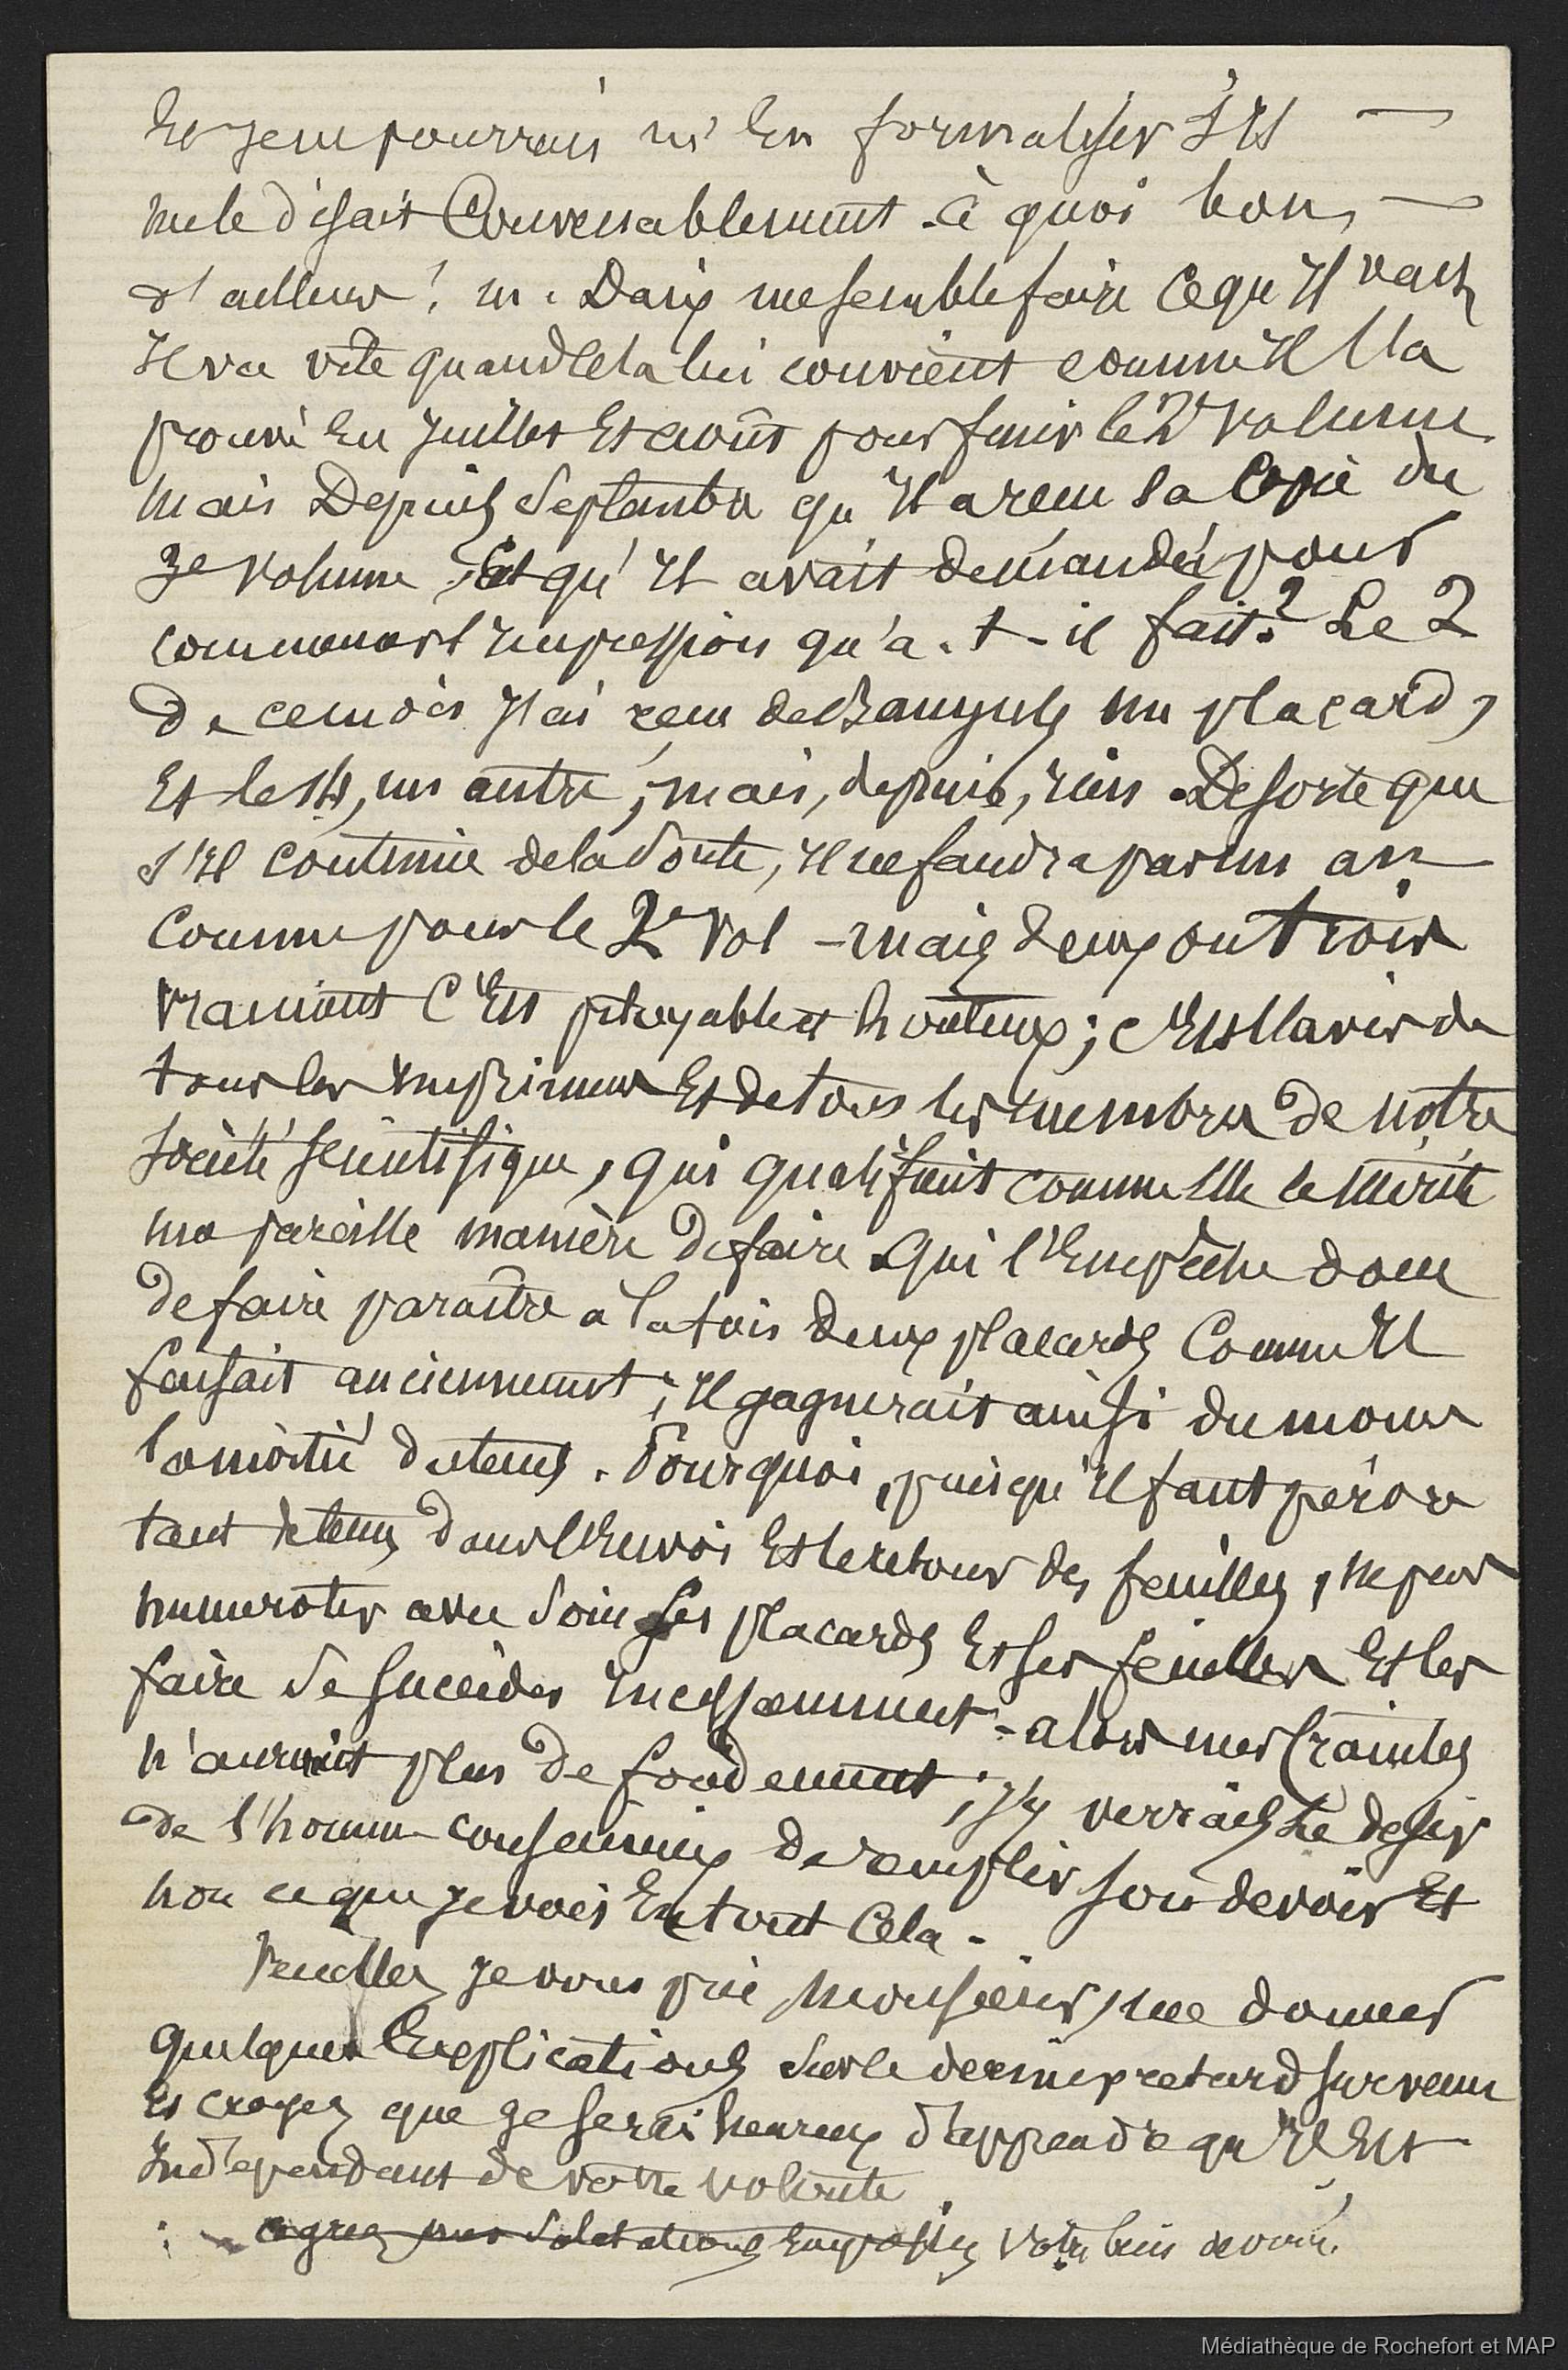 Et je ne pourrais m'en formaliser s'il
me le disait convenablement. à quoi bon,
d'ailleurs! m. Daix me semble faire ce qu'il veut,
Il va vite quand cela lui convient comme Il l'a
prouvé En Juillet Et août pour finir le 2e volume
mais Depuis Septembre qu'Il a reçu la Copie du
3e volume, Et qu'Il avait demandée pour
commencer l'impression qu'a-t-il fait? Le 2
De ce mois J'ai reçu un placard,
Et le 14, un autre; mais, depuis, rien. De sorte que
s'Il continue de la sorte, Il ne faudra pas un an
Comme pour le 2e vol - mais deux ou trois
vraiment C'Est pitoyable et honteux; c'Est l'avis de
tous les Imprimeurs Et de tous les membres de notre
société scientifique, qui qualifient comme Elle le mérite
une pareille manière de faire. Qui l'Empêche donc
de faire paraître à la fois deux placards Comme Il
faisait anciennement; Il gagnerait ainsi du moins
la moitié du temps. Pourquoi, puisqu'Il faut perdre
tant de temps dans l'Envoi Et le retour des feuilles, ne pas
numéroter avec soin ses placards Et ses feuilles Et les
faire se succéder incessamment - alors mes Craintes
n'auraient plus De fondement; J'y verrais Le désir
de l'homme consciencieux de remplir son devoir Et
non ce que Je vois En tout Cela -
Veuillez Je vous prie Monsieur, me donner
quelques Explications sur le dernier retard survenu
Et croyez que Je serai heureux d'apprendre qu'Il Est
Indépendant de votre volonté
agréez mes Salutations Empressées Votre bien dévoué.
Médiathèque de Rochefort et MAP